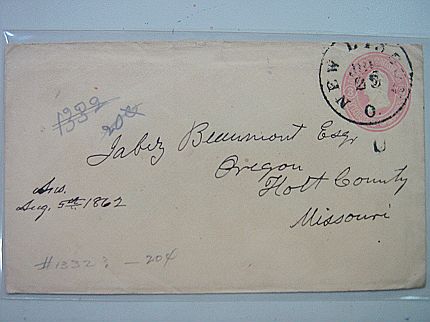 NEW LISBON
25
O
1332
20¢
Jabez Beaumont Esqr
Oregon
Holt County
Missouri
Ans.
Aug. 5th 1862
#1332 — 20¢